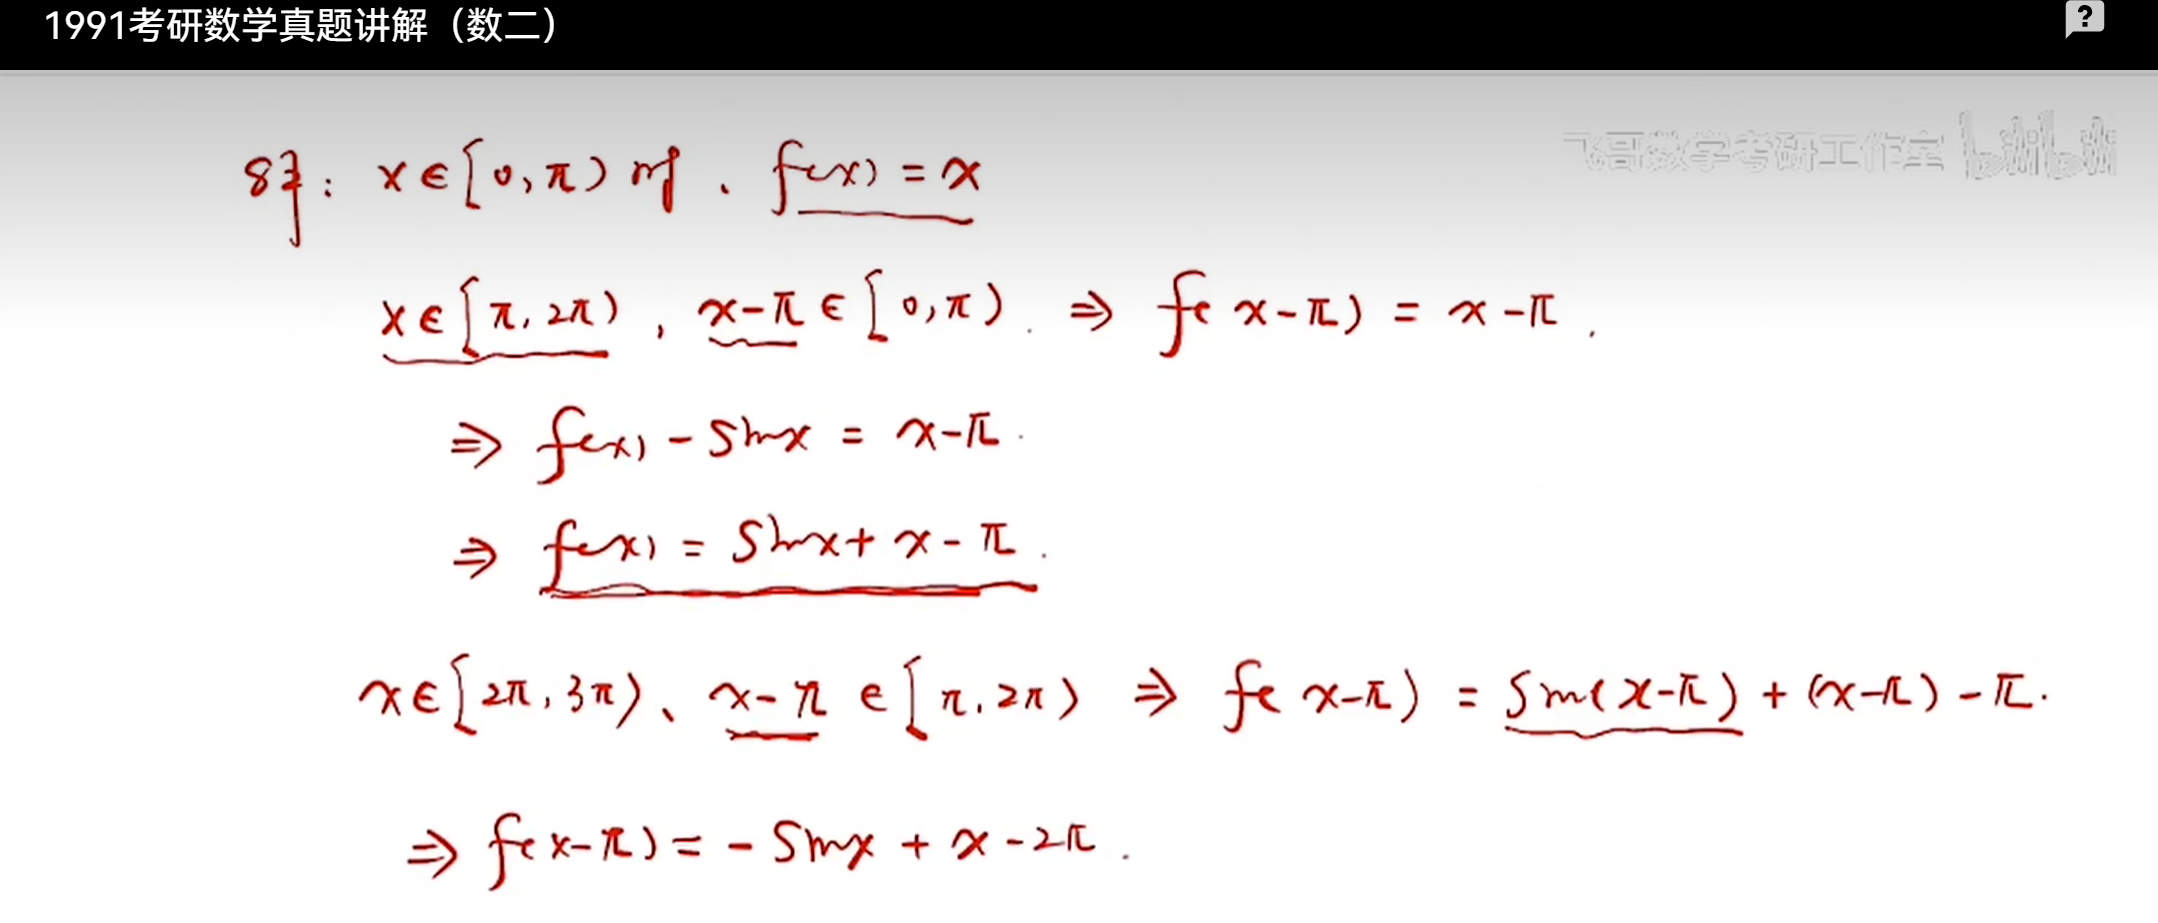 1991考研数学真题讲解（数二）
飞哥数学考研工作室 bilibili
解：x∈[0,π)时，f(x)=x
x∈[π,2π)，x-π∈[0,π). ⇒ f(x-π)=x-π.
⇒ f(x)-sinx=x-π.
⇒ f(x)=sinx+x-π.
x∈[2π,3π)、x-π∈[π,2π) ⇒ f(x-π)=sin(x-π)+(x-π)-π.
⇒ f(x-π)=-sinx+x-2π.